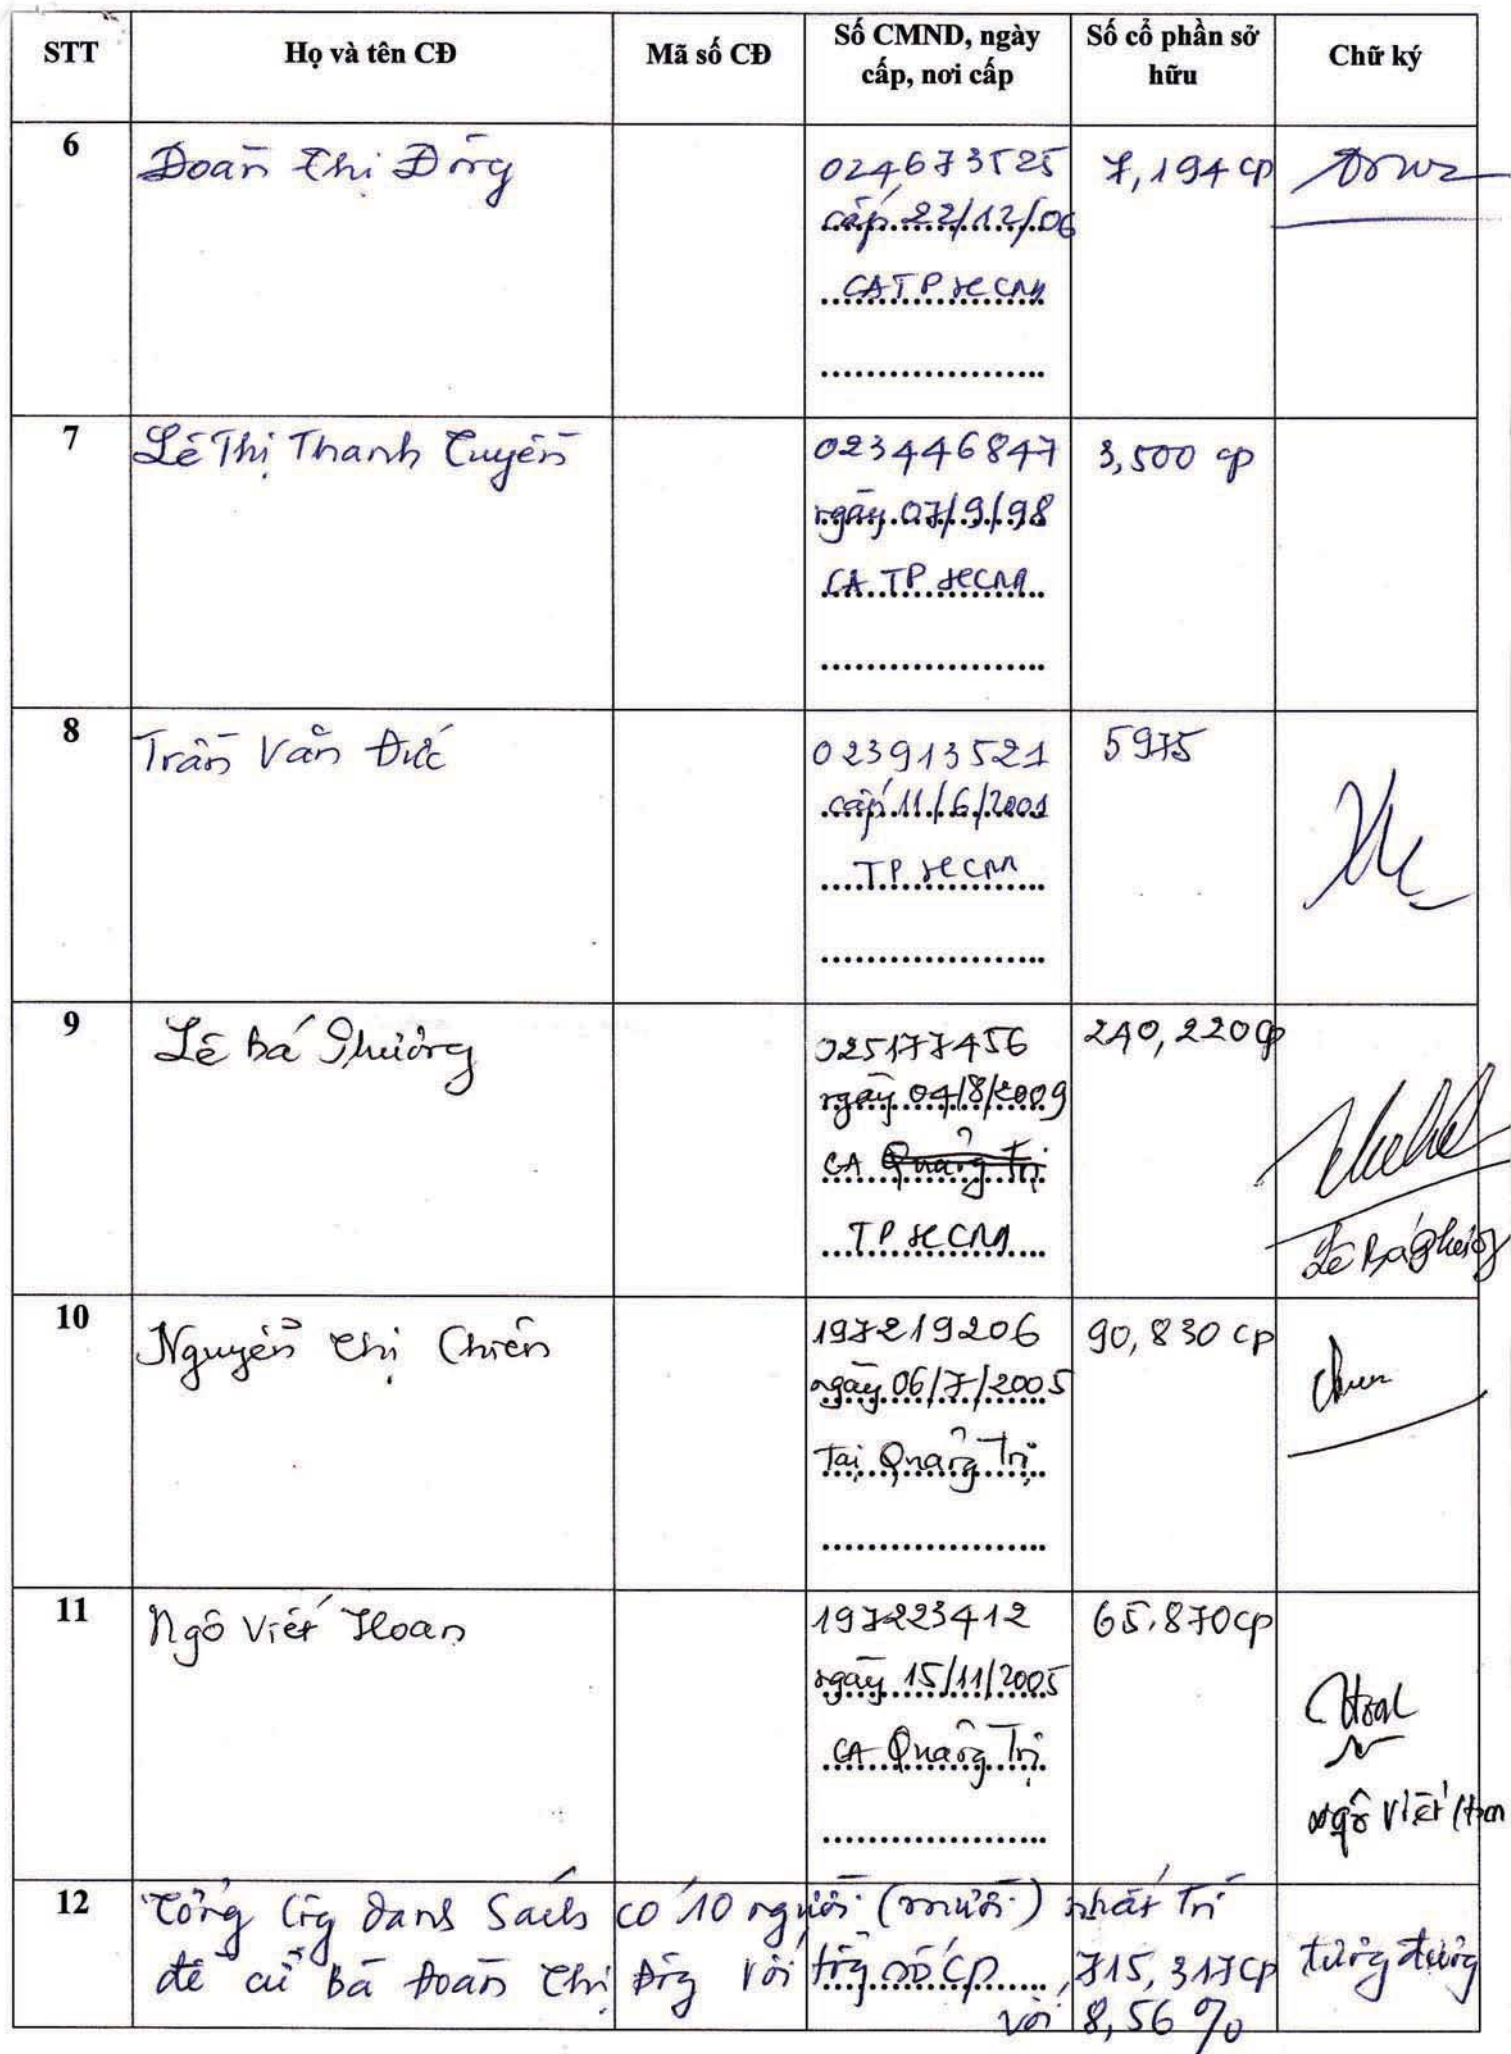 STT Họ và tên CĐ Mã số CĐ Số CMND, ngày cấp, nơi cấp Số cổ phần sở hữu Chữ ký
6 Đoàn Thị Đông 024673525 7,194 cp
cấp 22/12/06
CATP HCM
7 Lê Thị Thanh Tuyền 023446847 3,500 cp
ngày 07/9/98
CA TP HCM
8 Trần Văn Đức 023913521 5975
cấp 11/6/2001
TP HCM
9 Lê Bá Phương 025177456 240,220cp
ngày 04/8/2009
CA Quảng Trị
TP HCM
Lê Bá Phương
10 Nguyễn Thị Chiên 197219206 90,830 cp
ngày 06/7/2005
Tại Quảng Trị
11 Ngô Viết Hoan 197223412 65.870cp
ngày 15/11/2005
CA Quảng Trị
Ngô Viết Hoan
12 Tổng cộng danh sách có 10 người (mười) nhất trí
đề cử Bà Đoàn Thị Đông với tổng số cp 715,317cp tương đương
với 8,56 %